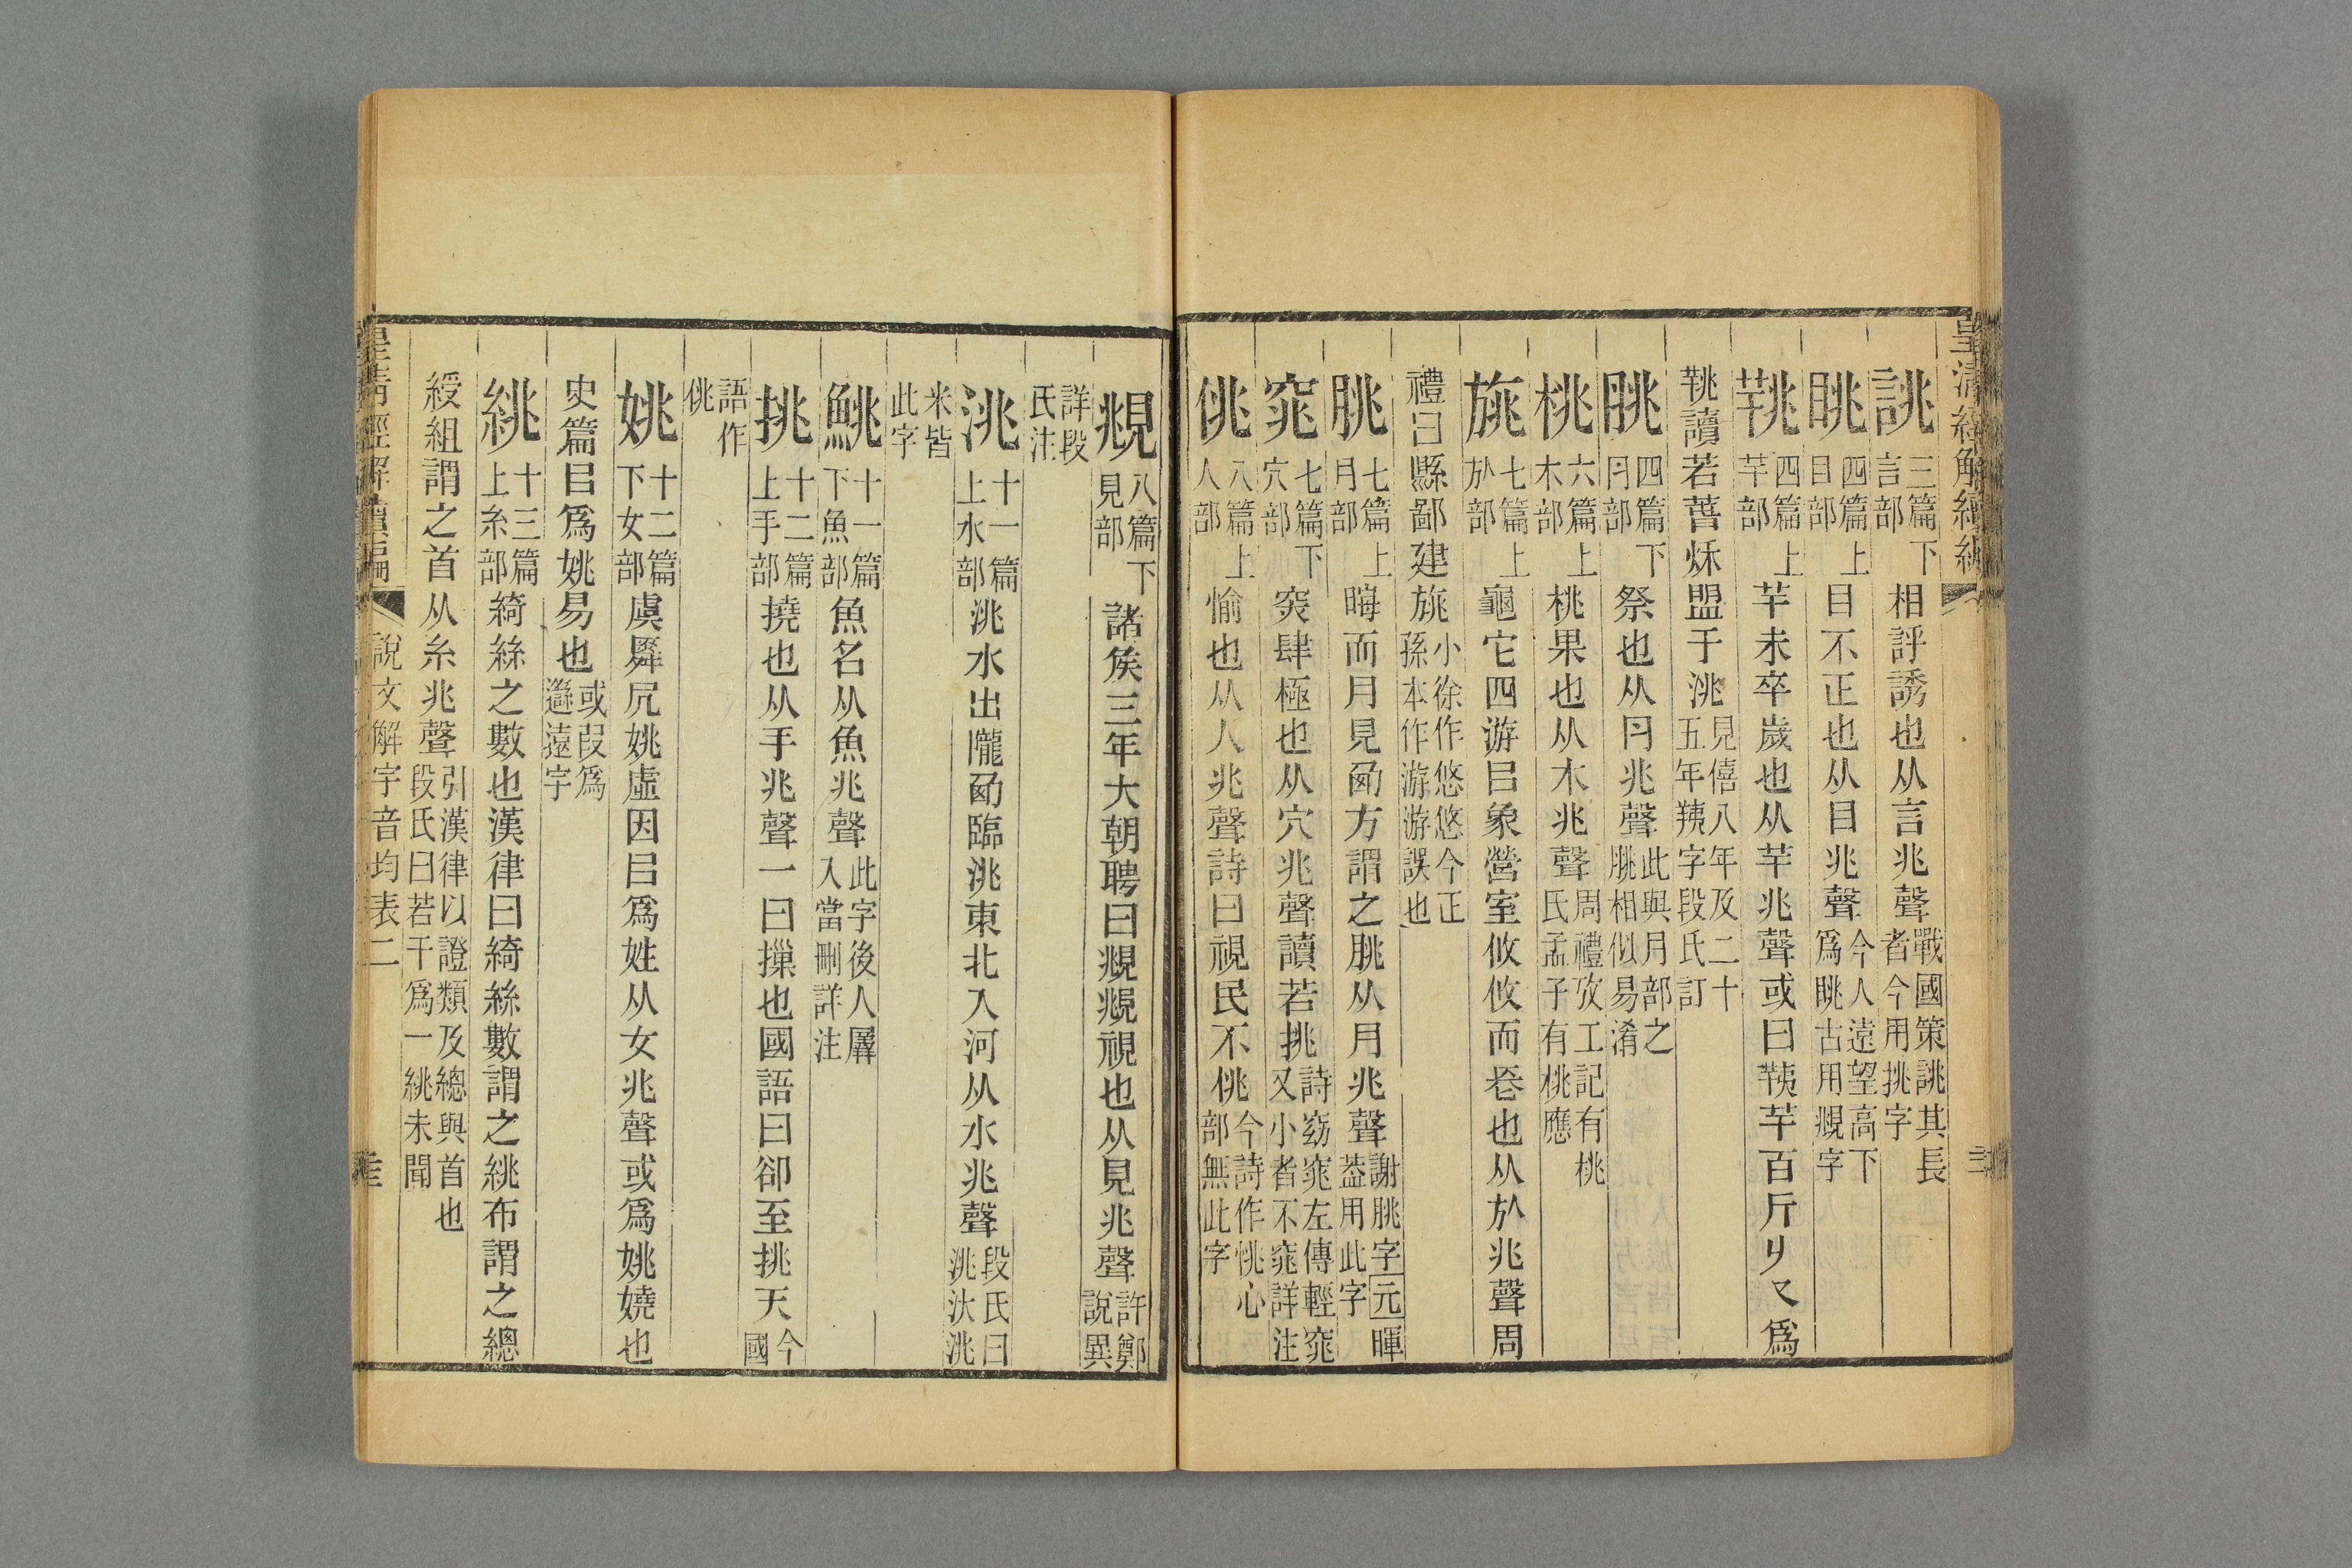 皇清經解續編
誂三篇下言部相評誘也从言兆聲戰國策誂其長者今用挑字
眺四篇上目部目不正也从目兆聲今人遠望高下爲眺古用覜字
𦍩四篇上羊部羊未卒歲也从羊兆聲或曰羠羊百斤ㄐ又爲
𦍩讀若𦳝炑盟于洮見僖八年及二十五年羠字段氏訂
朓四篇下冃部祭也从冃兆聲此與月部之朓相似易淆
桃六篇上木部桃果也从木兆聲周禮攷工記有桃氏孟子有桃應
旐七篇上㫃部龜它四游㠯象營室攸攸而䒭也从㫃兆聲周
禮曰縣鄙建旐小徐作悠悠今正孫本作游游誤也
朓七篇上月部晦而月見㢴方謂之朓从月兆聲謝朓字元暉葢用此字
窕七篇下穴部突肆極也从穴兆聲讀若挑詩窈窕左傳輕窕又小者不窕詳注
佻八篇上人部愉也从人兆聲詩曰視民不佻今詩作恌心部無此字
覜八篇下見部諸矦三年大朝聘曰覜覜視也从見兆聲許鄭說異
詳段氏注
洮十一篇上水部洮水出隴㢴臨洮東北入河从水兆聲段氏曰洮汏洮
米皆此字
鮡十一篇下魚部魚名从魚兆聲此字後人羼入當刪詳注
挑十二篇上手部撓也从手兆聲一曰摷也國語曰卻至挑天今國
語作佻
姚十二篇下女部虞舜凥姚虛因㠯爲姓从女兆聲或爲姚嬈也
史篇㠯爲姚易也或叚爲遥遠字
絩十三篇上糸部綺絲之數也漢律曰綺絲數謂之絩布謂之總
綬組謂之首从糸兆聲引漢律以證類及總與首也段氏曰若干爲一絩未聞
皇清經解續編 說文解字音均表二